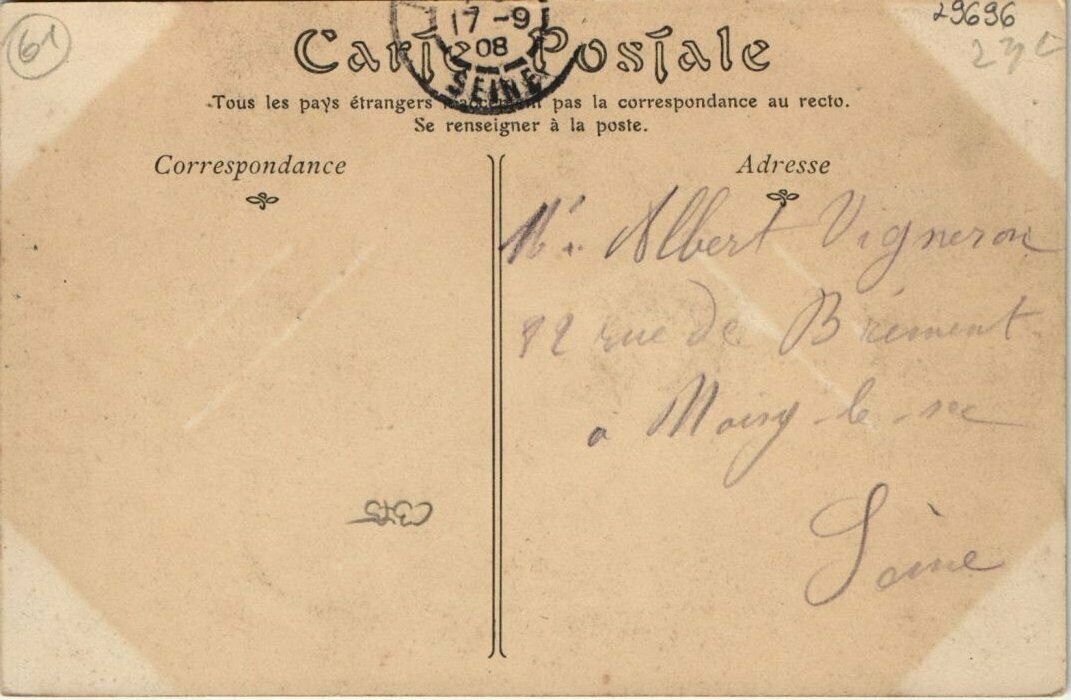 61
29696
17-9
08
SEINE
Carte Postale
Tous les pays étrangers n'acceptent pas la correspondance au recto.
Se renseigner à la poste.
Correspondance
Adresse
Mr. Albert Vigneron
82 rue de Brément
à Noisy-le-sec
Seine